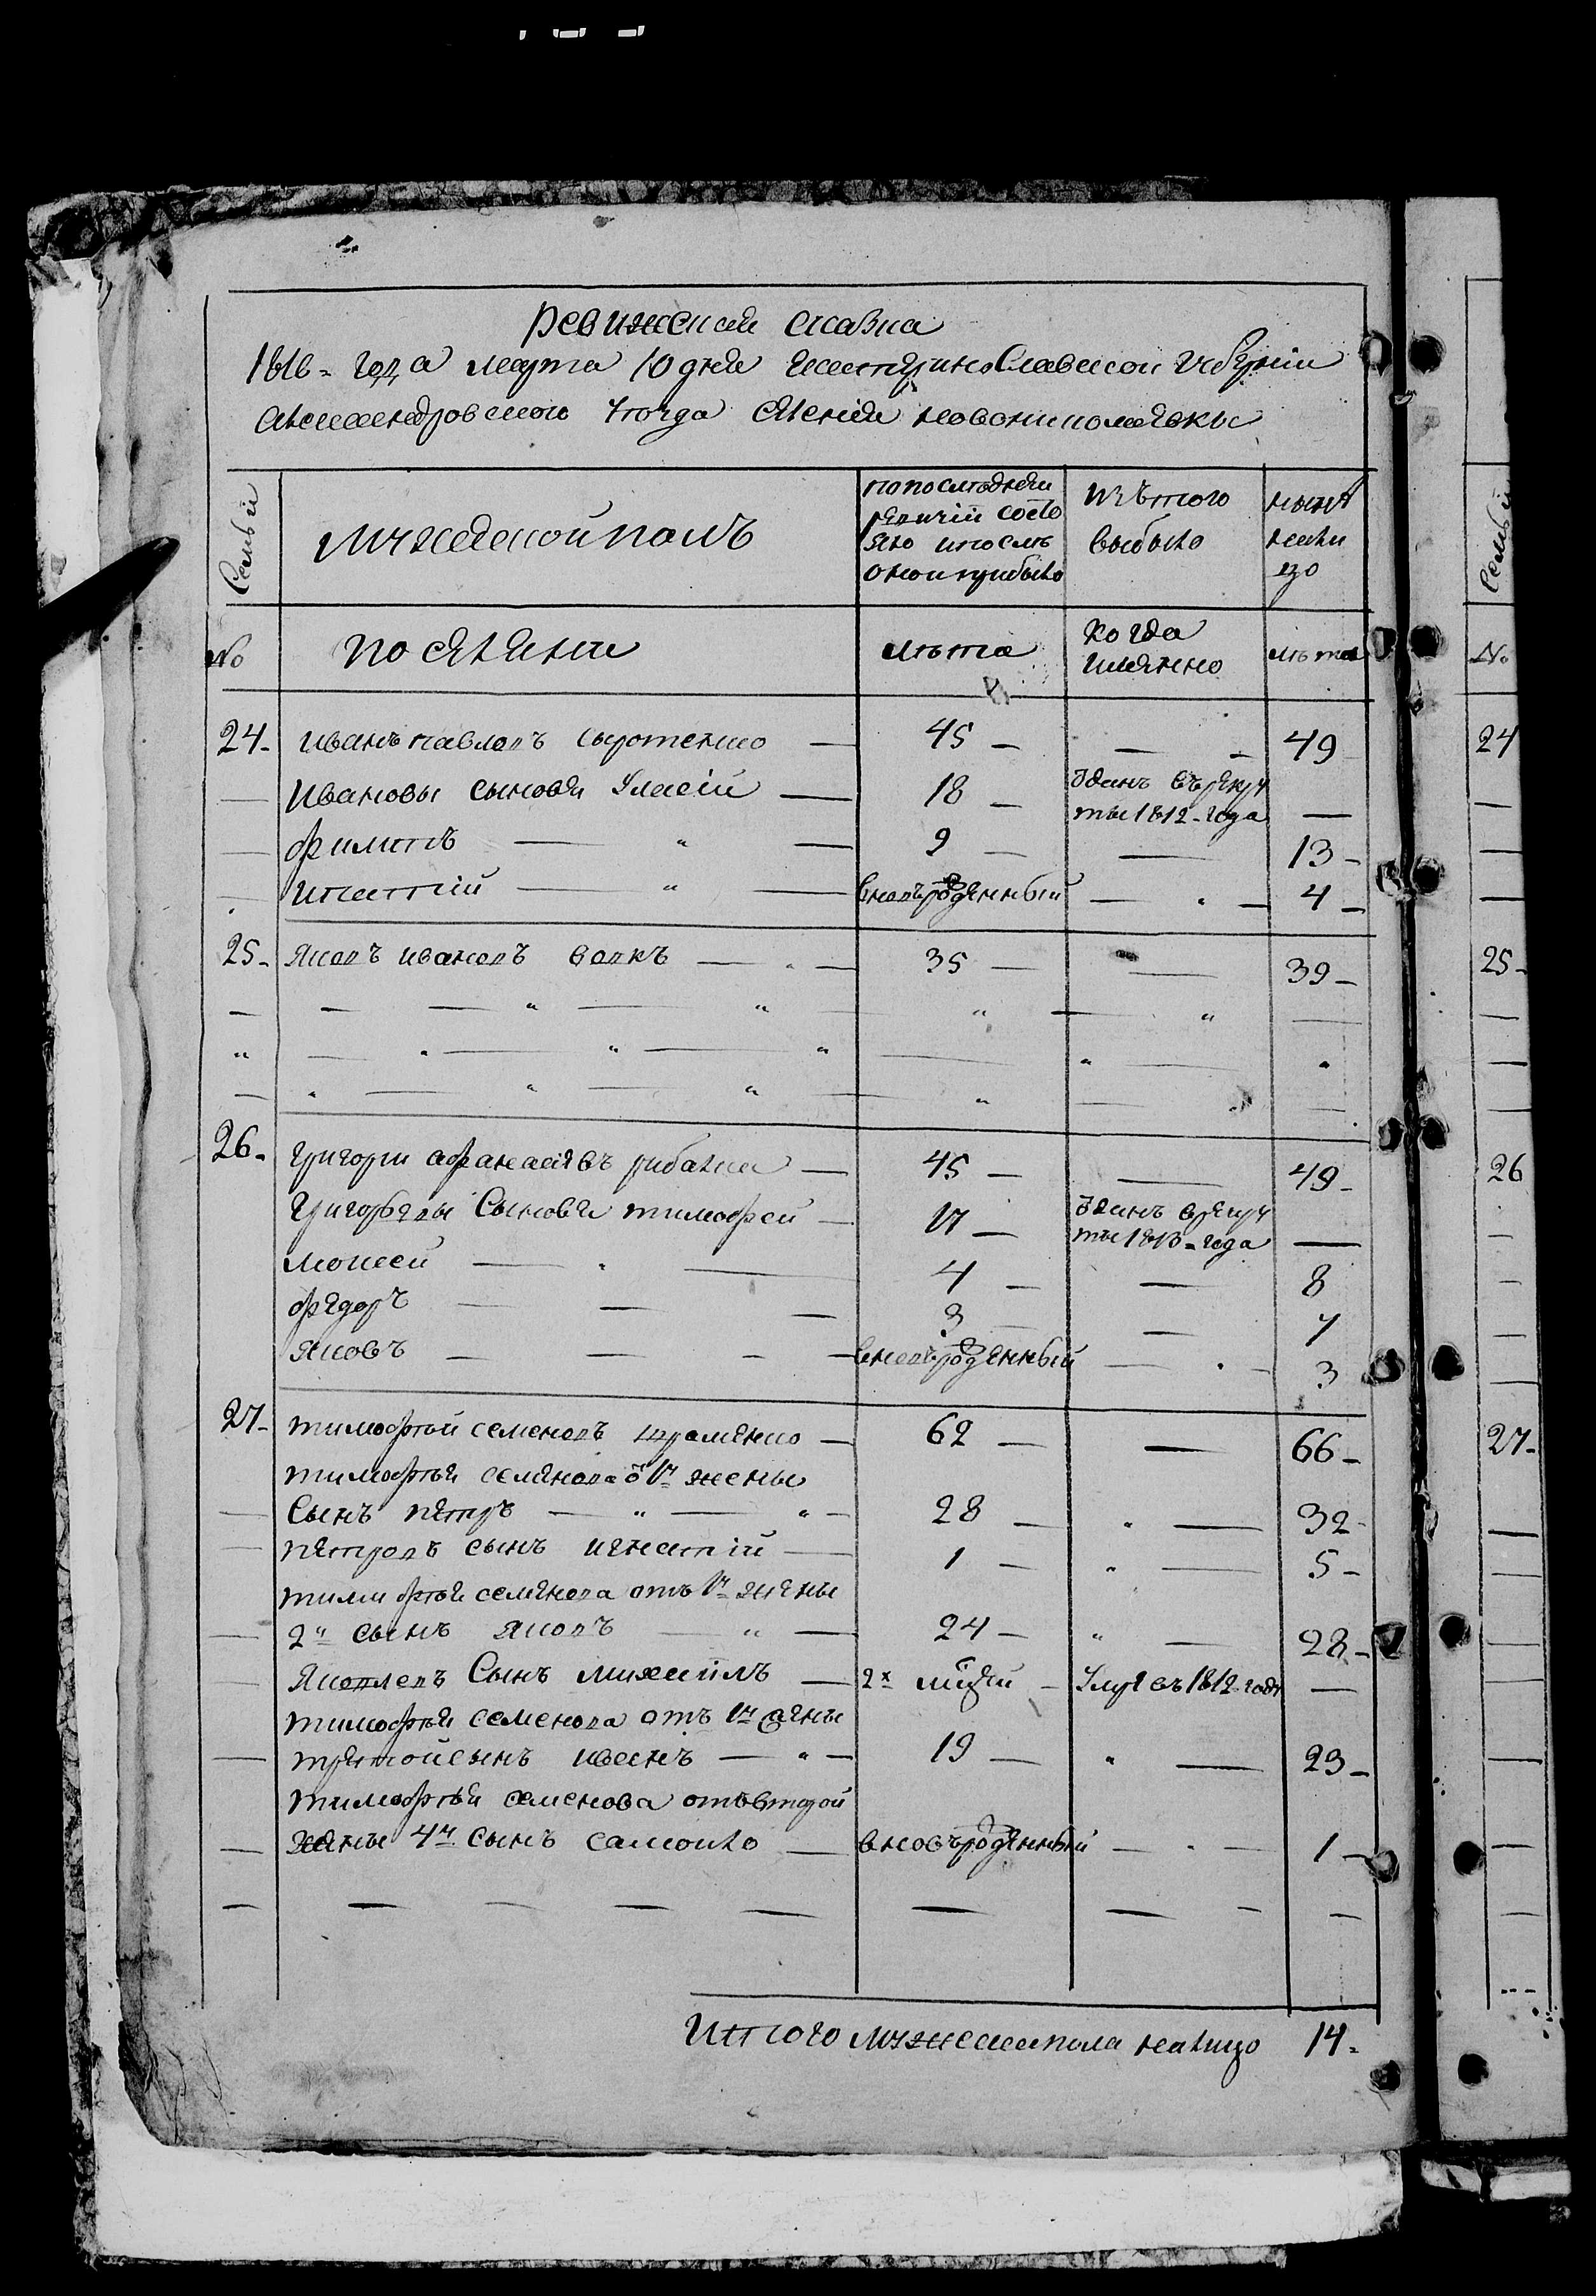 Ревижская сказка
1816 = года марта 10 дня Екатеринославской губернии
Александровского уезда селения новониколаевки
Семьи
мужеской полъ
по последней
ревизии состо
яло и после
оной прибыло
Изътого
выбыло
ныне
нали
цо
Семьи
№
поселяне
лета
когда
имянно
лета
№
24. Иванъ павловъ сыротенко — 45 — — 49
24
Ивановы сыновя Уласій — 18 — Зданъ въ рекру
ты 1812 - года —
филипъ — " — 9 — — 13 -
игнатій — " — вновьрожденный — 4 -
25. Яковъ ивановъ вовкъ — 35 — — 39 -
25-
26. григори афанасиевъ рибалка — 45 — — 49 -
26
григорьевы Сыновя тимофей — 17 — Зданъ врекру
ты 1813 = года —
моисей — 4 — — 8
федоръ — 3 — — 7
яковъ — вновьрожденный — 3
27. тимофей семеновъ — 62 — — 66 -
27-
тимофея семенова о 1й жены
Сынъ петръ — " — 28 — — 32 -
петровъ сынъ игнатій — 1 — " — 5 -
тимофея семенова отъ 1й жены
2й сынъ яковъ — " — 24 — " — 28 -
Яковлевъ Сынъ михаилъ — 2х — Умре въ 1812 году —
тимофея семенова отъ 1й жены
третой сынъ иванъ — " — 19 — " — 23 -
тимофея семенова отъ второй
жены 4й сынъ самойло — вновърожденный — 1 -
Итого мужеска пола налицо 14 =